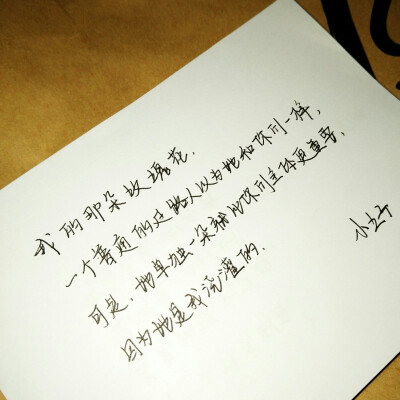 我的那朵玫瑰花.
一个普通的过路人以为她和你们一样,
可是.她单独一朵就比你们全体更重要.
因为她是我浇灌的.